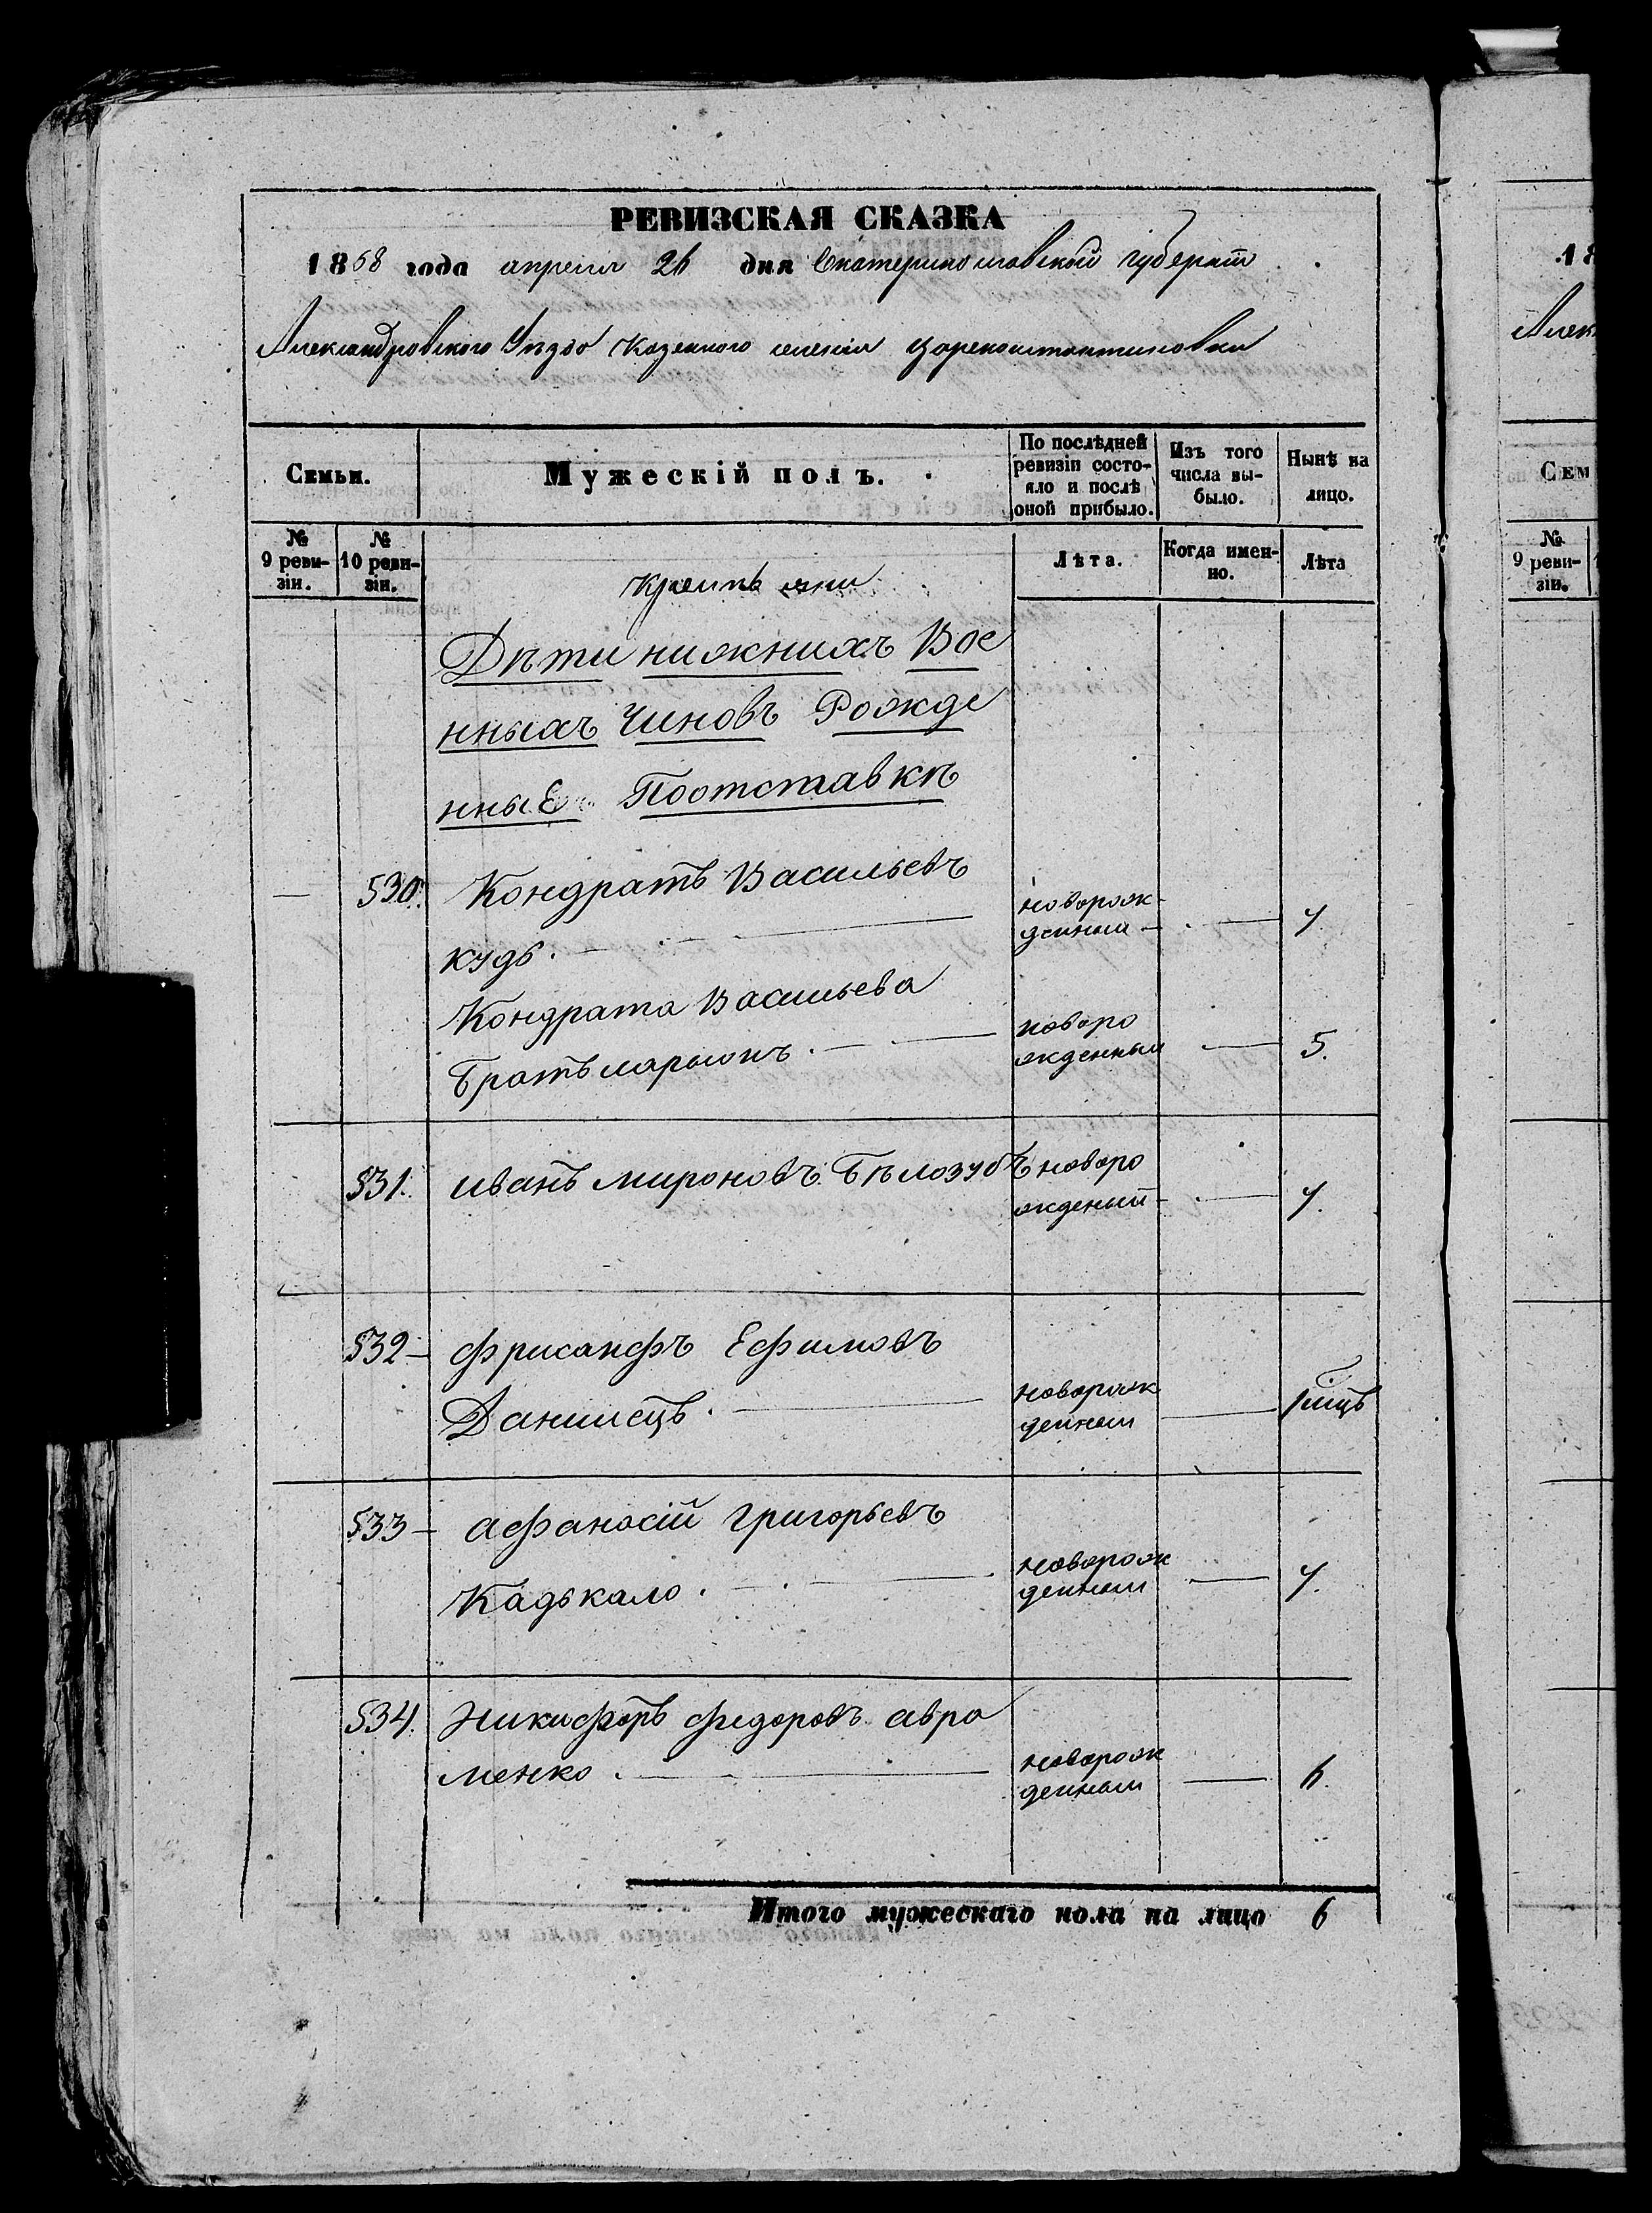 РЕВИЗСКАЯ СКАЗКА
1858 года апреля 26 дня Екатеринославской губернiи
Александровского Уѣзда Казенного селенiя Цареконстантиновки
Семьи.
Мужескiй полъ.
По послѣдней ревизiи состояло и послѣ оной прибыло.
Изъ того числа выбыло.
Нынѣ на лицо.
№ 9 ревизiи.
№ 10 ревизiи.
Лѣта.
Когда именно.
Лѣта
Дѣти нижнихъ Вое
нныхъ Чиновъ Рожде
нныЕ Поотставкѣ
— 530. Кондратъ Васильевъ
кудь. — новорож-
денный — — 7.
Кондрата Васильева
Братъ ларионъ. — новоро
жденный — 5.
531. иванъ мироновъ Бѣлозубъ новоро
жденый — — 7.
532 — фрисанфъ Ефимовъ
Данилецъ. — новорож
денный — 1 мцъ
533 — афанасiй григорьевъ
Кадькало. — новорож
денный — 7.
534. Никифоръ федоровъ авра
менко. — новорож
денный — 6.
Итого мужескаго пола на лицо 6
18
Алек
Сем
№ 9 ревизiи.